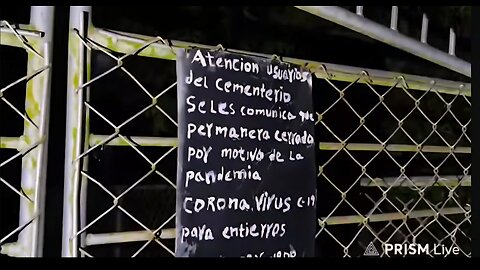 Atencion usuarios
del cementerio
Se les comunica que
permanera cerrada
por motivo de la
pandemia
CORONA.VIRUS C-19
para entierros
PRISM Live